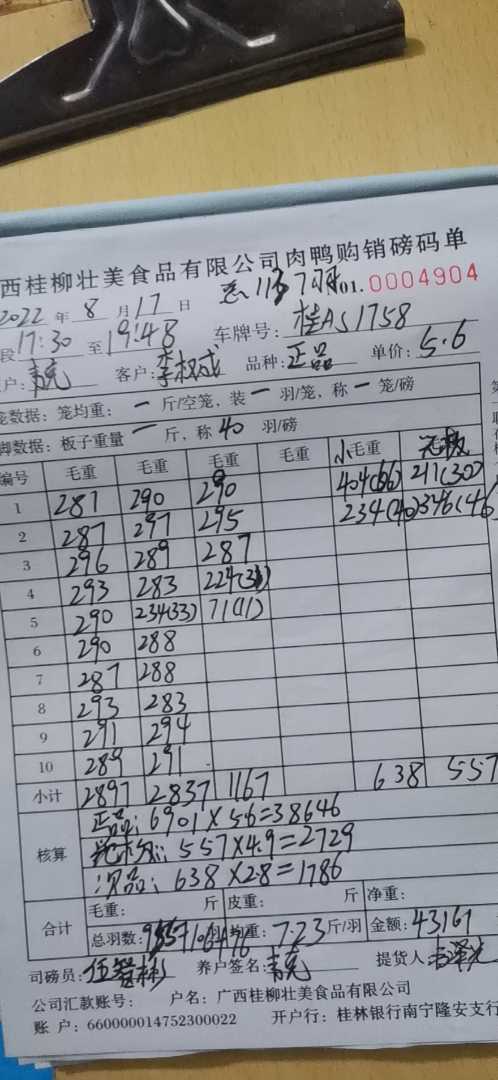 西桂柳壮美食品有限公司肉鸭购销磅码单
2022 年 8 月 17 日 01.0004904
段 17:30 至 19:48 车牌号: 桂AS1758
户: 客户: 品种: 正品 单价: 5.6
笼数据: 笼均重: 一 斤/空笼, 装 一 羽/笼, 称 一 笼/磅
脚数据: 板子重量 一 斤, 称 40 羽/磅
编号 毛重 毛重 毛重 毛重 小毛重
1 287 290 290 404(66) 211(30)
2 287 297 295 234(40) 346(46)
3 296 289 287
4 293 283
5 290 234(33) 71(11)
6 290 288
7 287 288
8 293 283
9 291 294
10 289 291
小计 2897 2837 1167 638 557
核算
正品: 6901×5.6=38646
557×4.9=2729
次品: 638×2.8=1786
合计 毛重: 斤 皮重: 斤 净重:
总羽数: 均重: 7.23 斤/羽 金额: 43161
司磅员: 养户签名: 提货人:
公司汇款账号: 户名: 广西桂柳壮美食品有限公司
账 户: 660000014752300022 开户行: 桂林银行南宁隆安支行